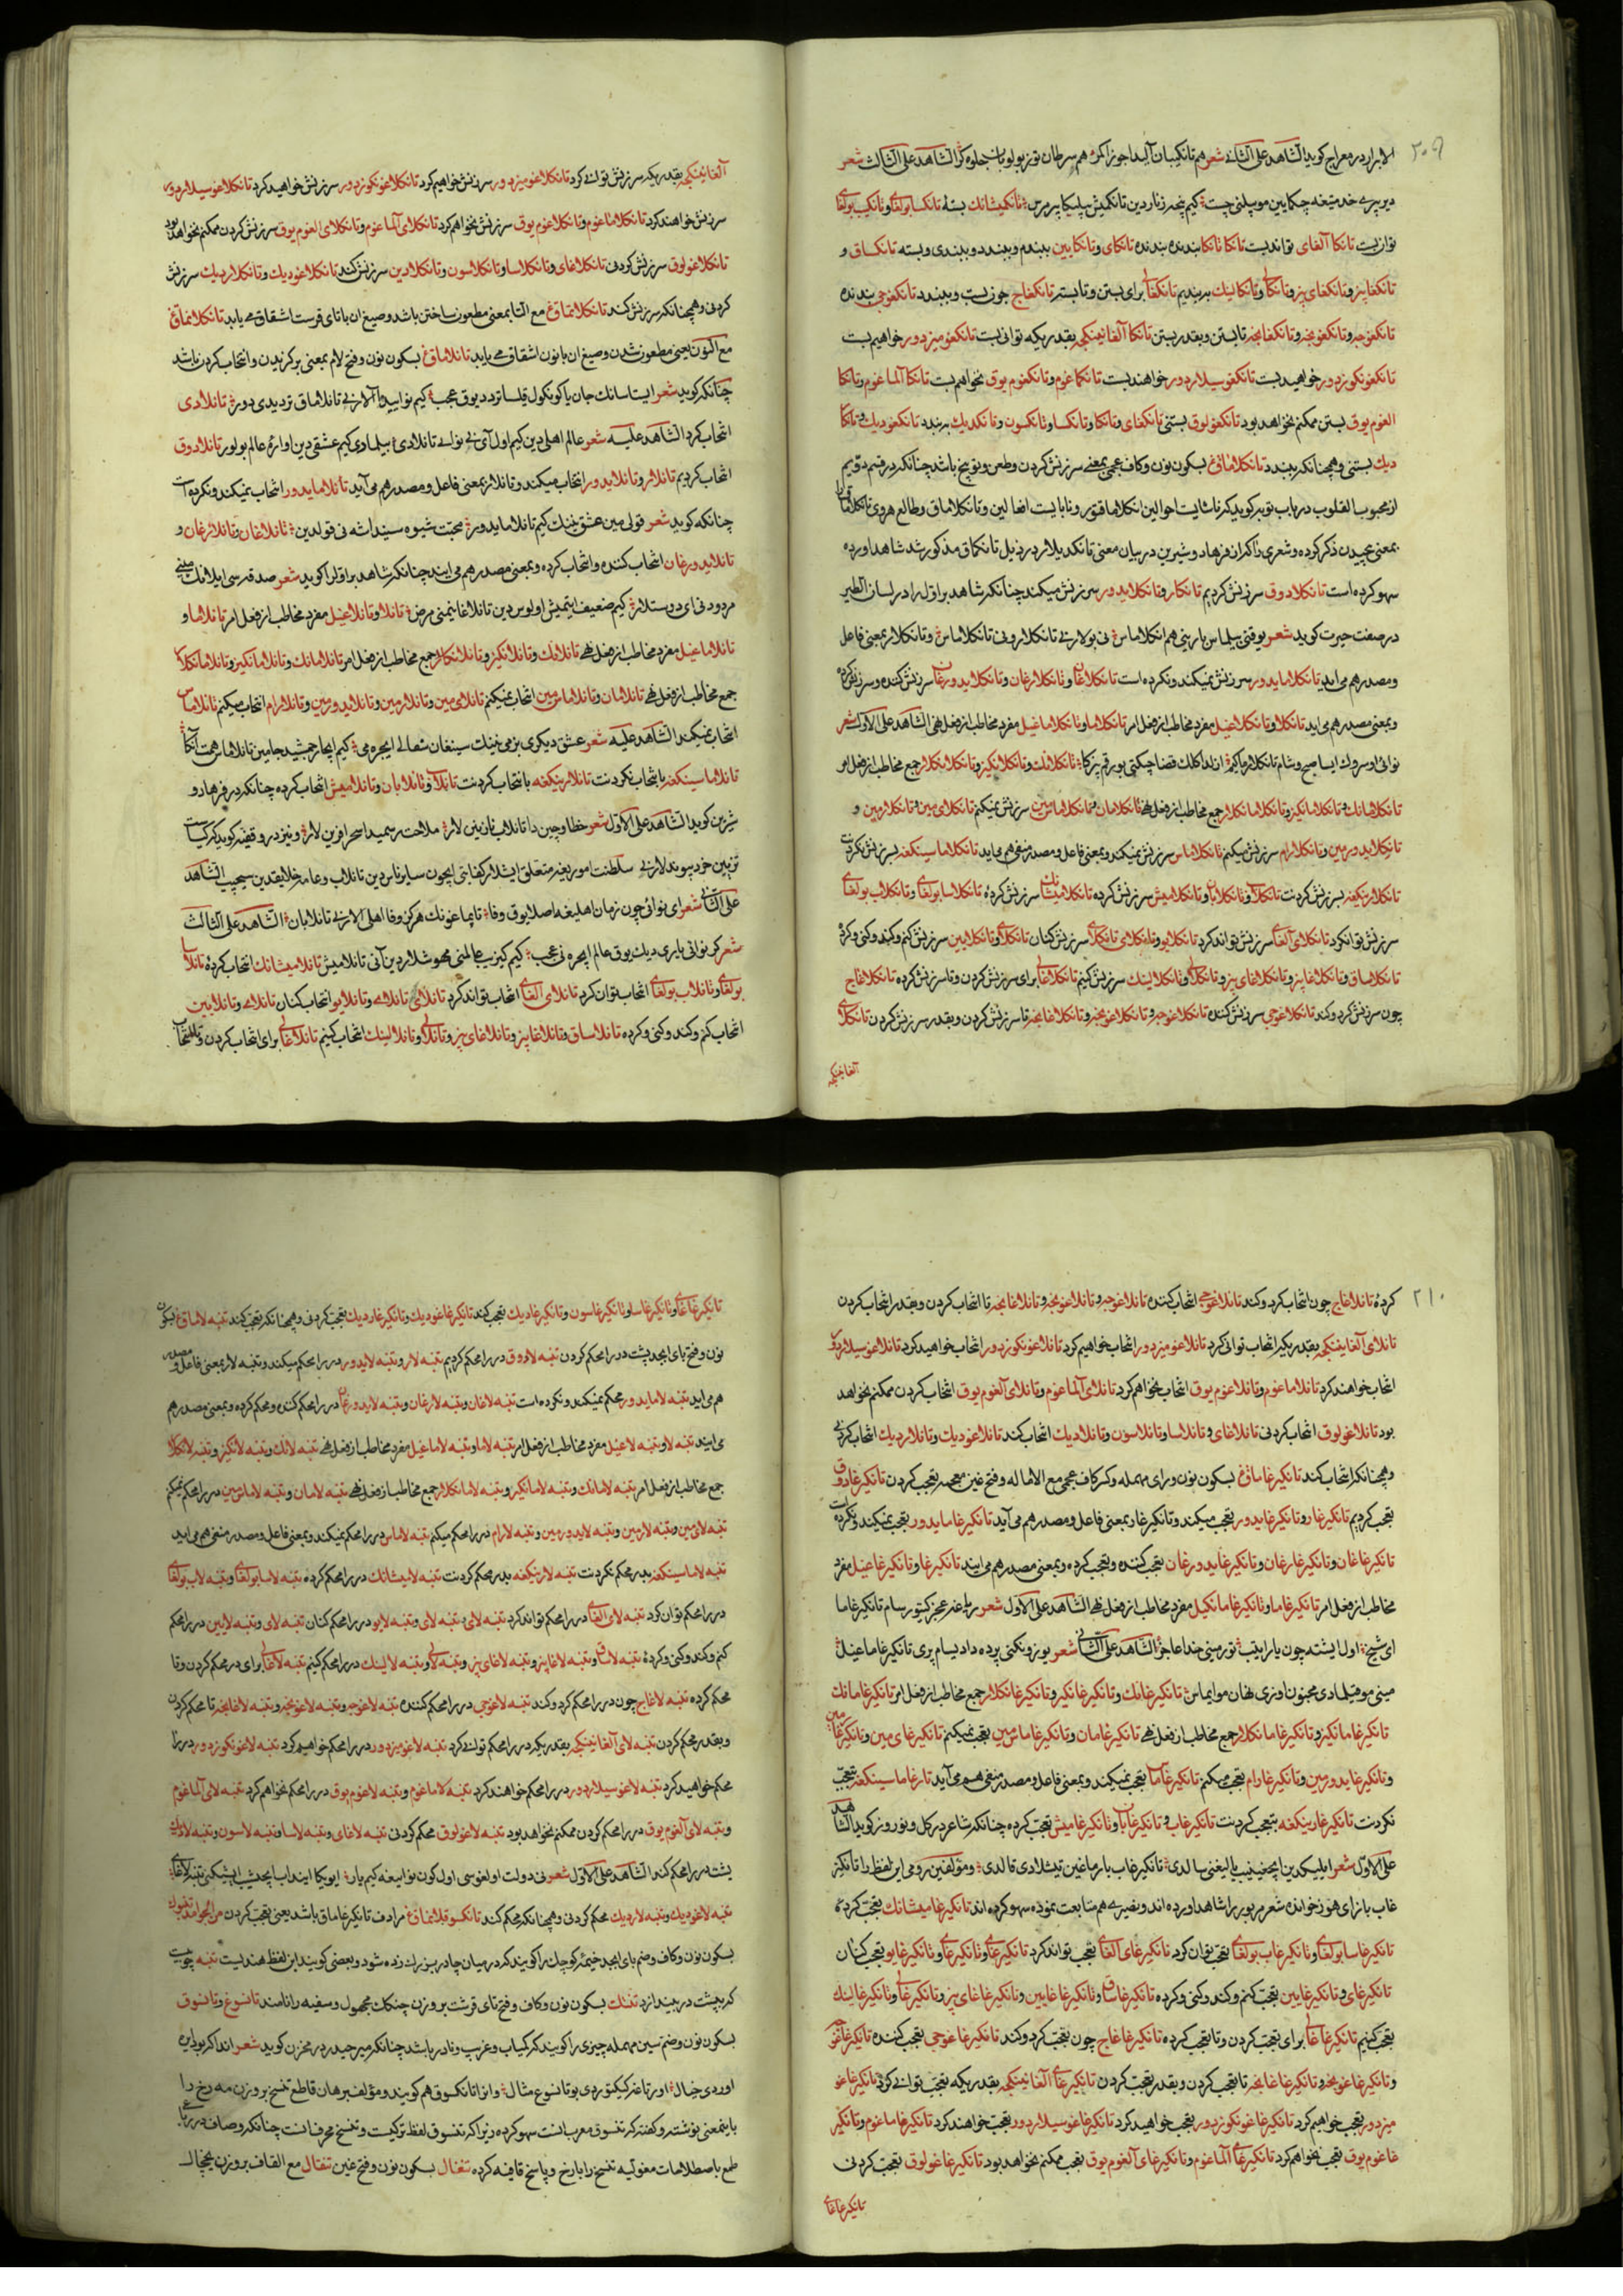 ۲۰۹
الابرار در معراج کوید الشاهد علی الثانی شعر هم تانکیبان آلیدا جوزا کمر هم سرطان توزیولوبان جلوه کر الشاهد علی الثالث شعر
توان بست تانکا آلغای تواند بست تانکا تانکا بنده بنده تانکای و تانکایین ببندم و ببندد و ببندی و بسته تانکساق و
تانکغوجه و تانکغونجه و تانکغانجه تا بستن و بقدر بستن تانکا آلغانینکجه بقدریکه توانی بست تانکغومیزدور خواهیم بست
تانکغونکوزدور خواهید بست تانکغوسیلاردور خواهند بست تانکماغوم و تانکغوم یوق نخواهم بست تانکا آلماغوم و تانکا
الغوم یوق بستن ممکنم نخواهد بود تانکغولوق بستنی تانکغای و تانکا و تانکسا و تانکسون و تانکدیك بربندد تانکغودیك و تانکا
دیك بستنی و همچنانکه ببندد تانکلاماق بسکون نون و کاف عجمی بمعنی سرزنش کردن و طعن و توبیخ باشد چنانکه در قسم دویم
بمعنی پیچیدن ذکر کرده و شعری ذاکران فرهاد و شیرین در بیان معنی تانکدیلار در ذیل تانکماق مذکور شد شاهد اورده
سهو کرده است تانکلادوق سرزنش کردیم تانکلار و تانکلایدور سرزنش میکند چنانکه شاهد براول را در لسان الطیر
در صفت حیرت کوید شعر یوقتی بیلماس بارینی هم انکلاماس نی بولارنی تانکلارو نی تانکلاماس و تانکلار بمعنی فاعل
و مصدر هم می اید تانکلامایدور سرزنش نمیکند و نکرده است تانکلاغان و تانکلارغان و تانکلایدورغان سرزنش کننده و سرزنش کرده
و بمعنی مصدر هم می اید تانکلا و تانکلاغیل مفرد مخاطب از فعل امر تانکلاما و تانکلاماغیل مفرد مخاطب از فعل نهی الشاهد علی الاول شعر
تانکلامانك و تانکلامانکیز و تانکلامانکلار جمع مخاطب از فعل نهی تانکلامان و تانکلاماس مین سرزنش نمیکنم تانکلای مین و تانکلارمین و
تانکلایدورمین و تانکلارام سرزنش میکنم تانکلاماس سرزنش نمیکند و بمعنی فاعل و مصدر منفی هم می اید تانکلاماسینکغه بسرزنش نکردنت
تانکلارینکغه بسرزنش کردنت تانکلاب و تانکلابان و تانکلامیش سرزنش کرده تانکلامیشانك سرزنش کردۀ تانکلاسا بولغای و تانکلاب بولغای
سرزنش توان کرد تانکلای آلغای سرزنش تواند کرد تانکلابو و تانکلای تانکلای سرزنش کنان تانکلای و تانکلایین سرزنش کنم و کند و کنی و کردۀ
تانکلاساق و تانکلاغابیز و تانکلاغای بیز و تانکلالی و تانکلالینك سرزنش کنیم تانکلاغالی برای سرزنش کردن و تا سرزنش کرده تانکلاغاج
چون سرزنش کرد و کند تانکلاغوجی سرزنش کننده تانکلاغوجه و تانکلاغونجه و تانکلاغانجه تا سرزنش کردن و بقدر سرزنش کردن تانکلای
آلغانینکجه
آلغانینکجه بقدریکه سرزنش توانی کرد تانکلاغومیزدور سرزنش خواهیم کرد تانکلاغونکوزدور سرزنش خواهید کرد تانکلاغوسیلاردور
سرزنش خواهند کرد تانکلاماغوم و تانکلاغوم یوق سرزنش نخواهم کرد تانکلای آلماغوم و تانکلای الغوم یوق سرزنش کردن ممکنم نخواهد بود
تانکلاغولوق سرزنش کردنی تانکلاغای و تانکلاسا و تانکلاسون و تانکلادین سرزنش کند تانکلاغودیك و تانکلاردیك سرزنش
کردنی و همچنانکه سرزنش کند تانکلاتماق مع التا بمعنی مطعون ساختن باشد و صیغ ان با تای قرست اشتقاق می یابد تانکلانماق
مع النون یعنی مطعون شدن و صیغ ان با نون اشتقاق می یابد تانلاماق بسکون نون و فتح لام بمعنی برکزیدن و انتخاب کردن باشد
چنانکه کوید شعر ایستاسانك جان یا کونکول قیلسا تردد یوق عجب کیم نوایی دا آلارنی تانلاماق تردیدی دور تانلادی
انتخاب کرد الشاهد علیه شعر عالم اهلی دین کیم اول آی نی نوائی تانلادی بیلمادی کیم عشقی دین اوارۀ عالم بولور تانلادوق
انتخاب کردیم تانلار و تانلایدور انتخاب میکند و تانلار بمعنی فاعل و مصدر هم می آید تانلامایدور انتخاب نمیکند و نکرده است
چنانکه کوید شعر قولی مین عشق نینك کیم تانلامایدور محبت شیوه سیندا شه نی قولدین تانلاغان و تانلارغان و
تانلایدورغان انتخاب کننده و انتخاب کرده و بمعنی مصدر هم می ایند چنانکه شاهد براول را کوید شعر صدقه سی ایلانك مینی
مردودنی ای دوستلار کیم ضعیف ایتمیش اولوس دین تانلاغانینی مرض تانلا و تانلاغیل مفرد مخاطب از فعل امر تانلاما و
تانلاماغیل مفرد مخاطب از فعل نهی تانلانك و تانلانکیز و تانلانکلار جمع مخاطب از فعل امر تانلامانك و تانلامانکیز و تانلامانکلار
جمع مخاطب از فعل نهی تانلامان و تانلاماس مین انتخاب نمیکنم تانلای مین و تانلارمین و تانلایدورمین و تانلارام انتخاب میکنم تانلاماس
انتخاب نمیکند الشاهد علیه شعر عشق دیکری بزمی نینك سینغان سفالی ایچره می کیم ایچار جمشید جامین تانلاماس همت آنکا
تانلاماسینکغه بانتخاب نکردنت تانلارینکغه بانتخاب کردنت تانلاب و تانلابان و تانلامیش انتخاب کرده چنانکه در فرهاد و
شیرین کوید الشاهد علی الاول شعر خطا و چین دا تانلاب نازنین لار ملاحت رسمیدا سحر افرین لار و نیز در وقفیه کوید که
علی الثانی شعر ای نوائی چون زمان اهلیغه اصلا یوق وفا تاپماغونك هرکز وفا اهلی الارنی تانلابان الشاهد علی الثالث
بولغای و تانلاب بولغای انتخاب توان کرد تانلای آلغای انتخاب تواند کرد تانلای تانلای و تانلابو انتخاب کنان تانلای و تانلایین
انتخاب کنم و کند و کنی و کرده تانلاساق و تانلاغابیز و تانلاغای بیز و تانلالی و تانلالینك انتخاب کنیم تانلاغالی برای انتخاب کردن و تا انتخاب
۲۱۰
کرده تانلاغاج چون انتخاب کرد و کند تانلاغوجی انتخاب کننده تانلاغوجه و تانلاغونجه و تانلاغانجه تا انتخاب کردن و بقدر انتخاب کردن
تانلای آلغانینکجه بقدریکه انتخاب توانی کرد تانلاغومیزدور انتخاب خواهیم کرد تانلاغونکوزدور انتخاب خواهید کرد تانلاغوسیلاردور
انتخاب خواهند کرد تانلاماغوم و تانلاغوم یوق انتخاب نخواهم کرد تانلای آلماغوم و تانلای آلغوم یوق انتخاب کردن ممکنم نخواهد
بود تانلاغولوق انتخاب کردنی تانلاغای و تانلاسا و تانلاسون و تانلادیك انتخاب کند تانلاغودیك و تانلاردیك انتخاب کردنی
و همچنانکه انتخاب کند تانکیرغاماق بسکون نون و رای مهمله و کسر کاف عجمی مع الاماله و فتح غین معجمه تعجب کردن تانکیرغادوق
تعجب کردیم تانکیرغار و تانکیرغایدور تعجب میکند و تانکیرغار بمعنی فاعل و مصدر هم می آید تانکیرغامایدور تعجب نمیکند و نکرده است
تانکیرغاغان و تانکیرغارغان و تانکیرغایدورغان تعجب کننده و تعجب کرده و بمعنی مصدر هم می ایند تانکیرغا و تانکیرغاغیل مفرد
مخاطب از فعل امر تانکیرغاما و تانکیرغامانکیل مفرد مخاطب از فعل نهی الشاهد علی الاول شعر رباعی عجز کیتورسام تانکیرغاما
ای شیخ اول ایشته چون یاراتیب تورمینی خدا عاجز الشاهد علی الثانی شعر یوزونکنی پرده دا دیسام پری تانکیرغاماغیل
مینی موقیلمادی مجنون اوزی نهان مو ایماس تانکیرغانك و تانکیرغانکیز و تانکیرغانکلار جمع مخاطب از فعل امر تانکیرغامانك
تانکیرغامانکیز و تانکیرغامانکلار جمع مخاطب از فعل نهی تانکیرغامان و تانکیرغاماس مین تعجب نمیکنم تانکیرغای مین و تانکیرغارمین
و تانکیرغایدورمین و تانکیرغارام تعجب میکنم تانکیرغاماس تعجب نمیکند و بمعنی فاعل و مصدر منفی هم می آید تانکیرغاماسینکغه بتعجب
نکردنت تانکیرغارینکغه بتعجب کردنت تانکیرغاب و تانکیرغابان و تانکیرغامیش تعجب کرده چنانکه شاعر در کل و نوروز کوید الشاهد
غاب با زای هوز خوانده شعر مزبور را شاهد اورده اند و نصیری هم متابعت نموده سهو کرده اند تانکیرغامیشانك تعجب کردۀ
تانکیرغاسا بولغای و تانکیرغاب بولغای تعجب توان کرد تانکیرغای آلغای تعجب تواند کرد تانکیرغای و تانکیرغای و تانکیرغابو تعجب کنان
تانکیرغای و تانکیرغایین تعجب کنم و کند و کنی و کرده تانکیرغاساق و تانکیرغاغابین و تانکیرغاغای بیز و تانکیرغالی و تانکیرغالینك
تعجب کنیم تانکیرغاغالی برای تعجب کردن و تا تعجب کرده تانکیرغاغاج چون تعجب کرد و کند تانکیرغاغوجی تعجب کننده تانکیرغاغوجه
و تانکیرغاغونجه و تانکیرغاغانجه تا تعجب کردن و بقدر تعجب کردن تانکیرغای آلغانینکجه بقدریکه تعجب توانی کرد تانکیرغاغو
میزدور تعجب خواهیم کرد تانکیرغاغونکوزدور تعجب خواهید کرد تانکیرغاغوسیلاردور تعجب خواهند کرد تانکیرغاماغوم و تانکیر
غاغوم یوق تعجب نخواهم کرد تانکیرغای آلماغوم و تانکیرغای آلغوم یوق تعجب ممکنم نخواهد بود تانکیرغاغولوق تعجب کردنی
تانکیرغاغای
تانکیرغاغای و تانکیرغاسا و تانکیرغاسون و تانکیرغادیك تعجب کند تانکیرغاغودیك و تانکیرغاردیك تعجب کردنی و همچنانکه تعجب کند تنبه لاماق بسکون
نون و فتح بای ابجد پشت در را محکم کردن تنبه لادوق در را محکم کردیم تنبه لار و تنبه لایدور در را محکم میکند و تنبه لار بمعنی فاعل و مصدر
هم می اید تنبه لامایدور محکم نمیکند و نکرده است تنبه لاغان و تنبه لارغان و تنبه لایدورغان در را محکم کننده و محکم کرده و بمعنی مصدر هم
می ایند تنبه لا و تنبه لاغیل مفرد مخاطب از فعل امر تنبه لاما و تنبه لاماغیل مفرد مخاطب از فعل نهی تنبه لانك و تنبه لانکیز و تنبه لانکلار
جمع مخاطب از فعل امر تنبه لامانك و تنبه لامانکیز و تنبه لامانکلار جمع مخاطب از فعل نهی تنبه لامان و تنبه لاماس مین در را محکم نمیکنم
تنبه لای مین و تنبه لارمین و تنبه لایدورمین و تنبه لارام در را محکم میکنم تنبه لاماس در را محکم نمیکند و بمعنی فاعل و مصدر منفی هم می اید
تنبه لاماسینکغه بدر محکم نکردنت تنبه لارینکغه بدر محکم کردنت تنبه لامیشانك در را محکم کردۀ تنبه لاسا بولغای و تنبه لاب بولغای
در را محکم توان کرد تنبه لای الغای در را محکم تواند کرد تنبه لای تنبه لای و تنبه لابو در را محکم کنان تنبه لای و تنبه لایین در را محکم
کنم و کند و کنی و کردۀ تنبه لاساق و تنبه لاغابیز و تنبه لاغای بیز و تنبه لالی و تنبه لالینك در را محکم کنیم تنبه لاغالی برای در محکم کردن و تا
محکم کرده تنبه لاغاج چون در را محکم کرد و کند تنبه لاغوجی در را محکم کننده تنبه لاغوجه و تنبه لاغونجه و تنبه لاغانجه تا محکم کردن
و بقدر محکم کردن تنبه لای آلغانینکجه بقدریکه در را محکم توانی کرد تنبه لاغومیزدور در را محکم خواهیم کرد تنبه لاغونکوزدور در را
محکم خواهید کرد تنبه لاغوسیلاردور در را محکم خواهند کرد تنبه لاماغوم و تنبه لاغوم یوق در را محکم نخواهم کرد تنبه لای آلماغوم
و تنبه لای آلغوم یوق در را محکم کردن ممکنم نخواهد بود تنبه لاغولوق محکم کردنی تنبه لاغای و تنبه لاسا و تنبه لاسون و تنبه لادیك
تنبه لاغودیك و تنبه لاردیك محکم کردنی و همچنانکه محکم کند تانکسوقلانماق مرادف تانکیرغاماق باشد یعنی تعجب کردن من الجوامد تنبوك
بسکون نون و کاف و ضم بای ابجد خیمۀ کوچك را کویند که در میان چادر بزرك زده شود و بعضی کویند این لفظ هندیست تنبه چوبیست
که پشت در بیندازد تنك بسکون نون و کاف و فتح تای قرشت بروزن چنکك مجهول و سفیه را نامند تانسوغ و تانسوق
بسکون نون و ضم سین مهمله چیزی را کویند که کمیاب و غریب و نادر باشد چنانکه میر حیدر در مخزن کوید شعر
باینمعنی نوشته و کفته که تنسوق معرب انست سهو کرده زیرا که تنسوق لفظ ترکیست و تنسخ محرف انست چنانکه وصاف در
طمع باصطلاحات مغولیه تنسخ را با رخ و پاسخ قافیه کرده تنغال بسکون نون و فتح غین تنقال مع القاف بروزن یخچال